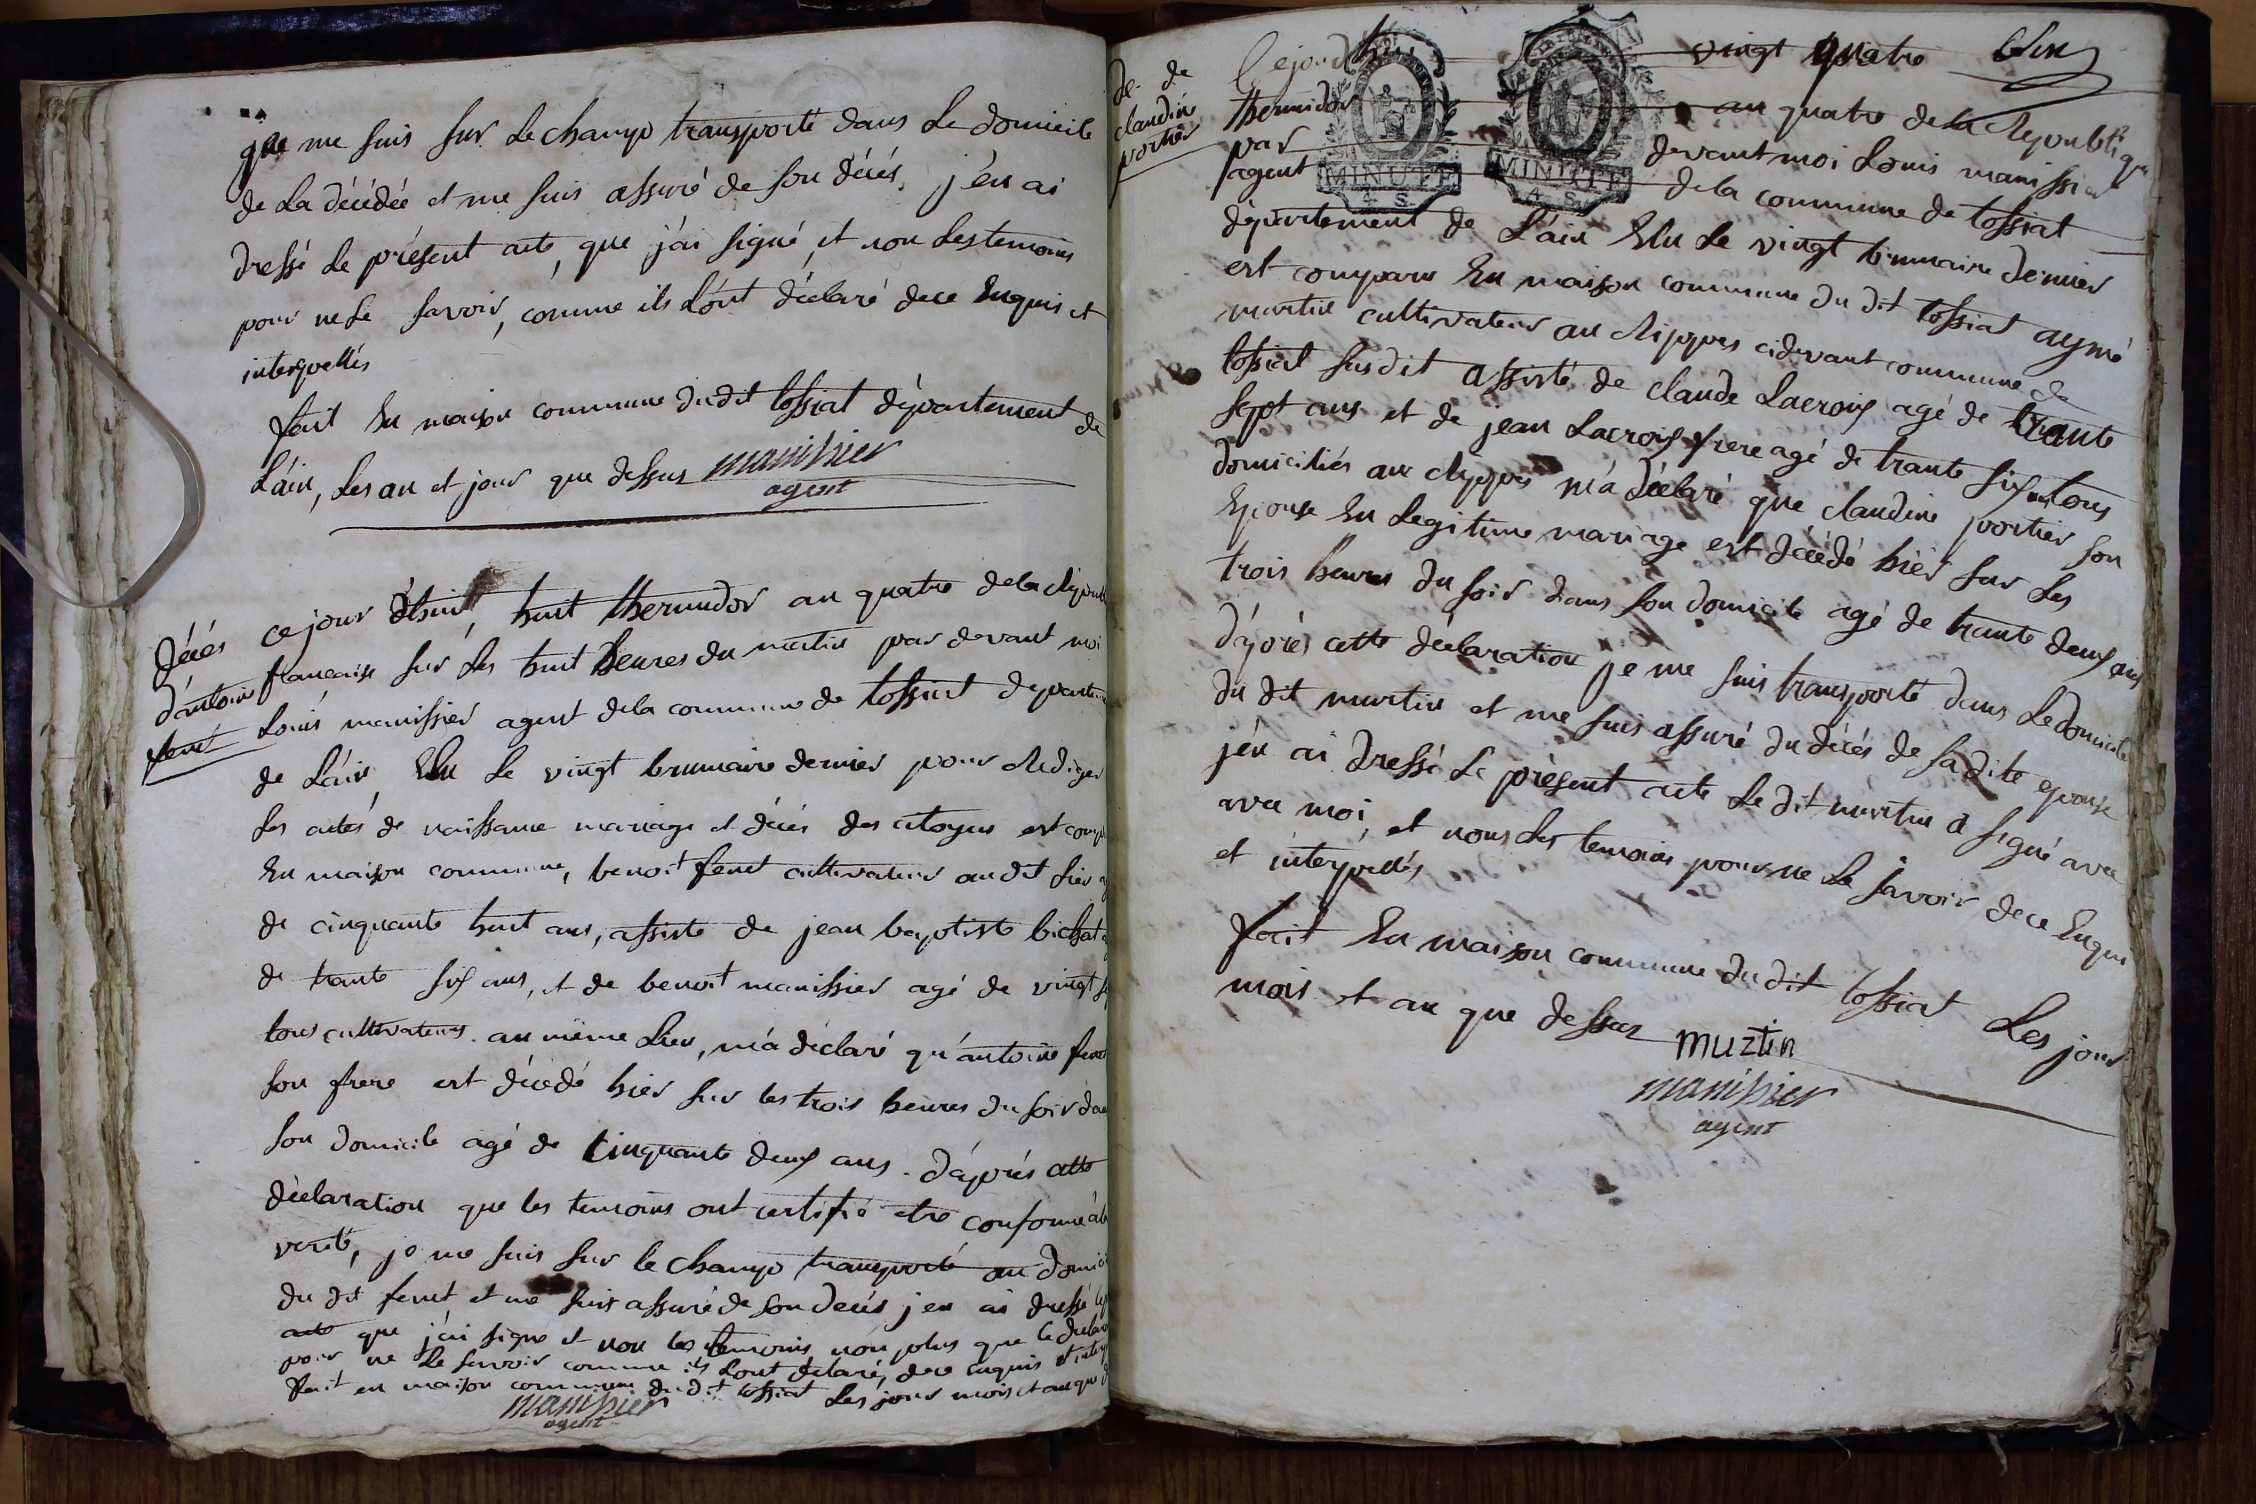 que me suis sur le champ transporté dans le domicile
de la décédée et me suis assuré de son décés, j'en ai
dressé le présent acte, que j'ai signé, et non les temoins
pour ne le savoir, comme ils l'ont déclaré de ce enquis et
interpellés
fait en maison commune du dit tossiat département de
l'ain, les an et jour que dessus manissier
agent
décés
d'antoine
feret
ce jour d'hui, huit thermidor an quatre de la répub
francaise sur les huit heures du matin par devant moi
louis manissier agent de la commune de tossiat départem
de l'ain, élu le vingt brumaire dernier pour rediger
les actes de naissance mariage et décés des citoyens est comp
en maison commune, benoit feret cultivateur au dit lieu
de cinquante huit ans, assisté de jean baptiste bichat
de trante six ans, et de benoit manissier agé de vingt
tous cultivateurs au même lieu, m'a déclaré qu'antoine feret
son frere est décédé hier sur les trois heures du soir dan
son domicile agé de cinquante deux ans. d'après cette
déclaration que les temoins ont certifié etre conforme à la
verité, je me suis sur le champ transporté au domici
du dit feret et me suis assuré de son decés j'en ai dressé le p
acte que j'ai signé et non les temoins non plus que le declar
pour ne le savoir comme ils l'ont declaré, de ce enquis et interp
fait en maison commune du dit tossiat les jour mois et an que d
manissier
agent
de
claudine
portier
Ce jourd'hui vingt quatre
thermidor an quatre de la République
par devant moi Louis manissier
agent de la commune de tossiat
MINUTE
4 S
MINUTE
4 S
département de l'ain élu le vingt brumaire dernier
est comparu en maison commune du dit tossiat aymé
murtin cultivateur au Rippes cidevant commune de
tossiat susdit assisté de claude Lacroix agé de trante
sept ans et de jean Lacroix frere agé de trante six ans tous
domiciliés au Rippes m'a déclaré que claudine portier son
épouse en legitime mariage est décédé hier sur les
trois heures du soir dans son domicile agé de trante deux ans
d'après cette déclaration je me suis transporté dans le domicile
du dit murtin et me suis assuré du décés de sadite epouse
j'en ai dressé le présent acte le dit murtin a signé avec
avec moi, et nous les temoins pour ne le savoir de ce enquis
et interpellés
fait en maison commune du dit tossiat les jour
mois et an que dessus muztin
manissier
agent